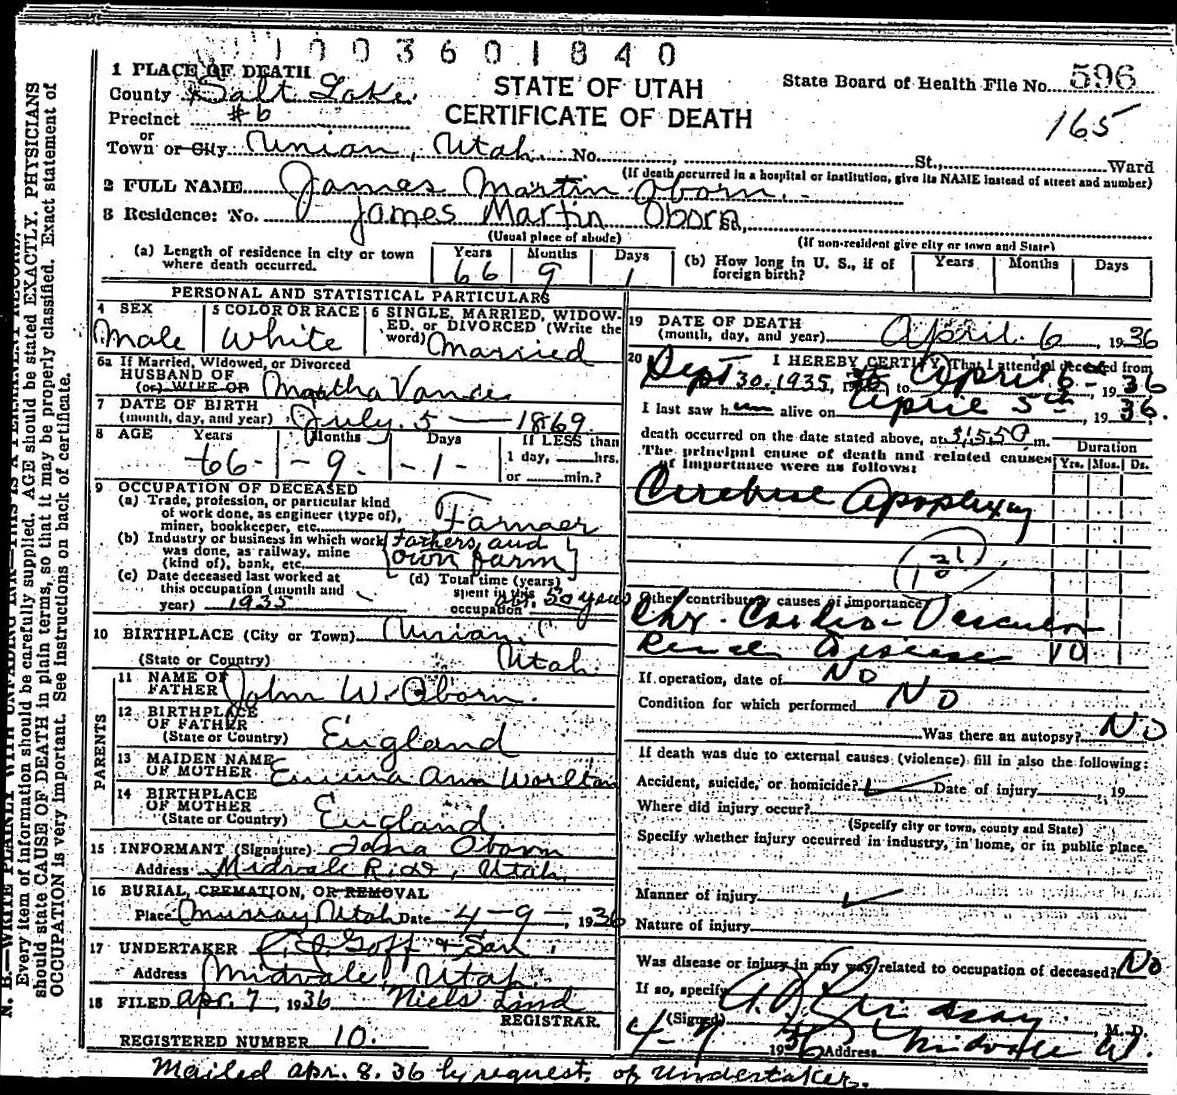 1003601840
1 PLACE OF DEATH
County Salt Lake
STATE OF UTAH
State Board of Health File No. 596
Precinct #6
CERTIFICATE OF DEATH
165
or
Town or City Union, Utah. No. St., Ward
(If death occurred in a hospital or institution, give its NAME instead of street and number)
2 FULL NAME James Martin Oborn.
3 Residence: No. James Martin Oborn St.,
(Usual place of abode) (If non-resident give city or town and State)
(a) Length of residence in city or town where death occurred. Years 66 Months 9 Days 1
(b) How long in U. S., if of foreign birth? Years Months Days
PERSONAL AND STATISTICAL PARTICULARS
4 SEX
Male
5 COLOR OR RACE
White
6 SINGLE, MARRIED, WIDOW-
ED, or DIVORCED (Write the
word) Married
6a If Married, Widowed, or Divorced
HUSBAND OF
(or) WIFE OF Martha Vance
7 DATE OF BIRTH
(month, day, and year) July 5 — 1869
8 AGE Years Months Days If LESS than
66 - 9 - 1 - 1 day, hrs.
or min.?
9 OCCUPATION OF DECEASED
(a) Trade, profession, or particular kind
of work done, as engineer (type of),
miner, bookkeeper, etc. Farmer
(b) Industry or business in which work
was done, as railway, mine
(kind of), bank, etc. Fathers and
own farm
(c) Date deceased last worked at
this occupation (month and
year) 1935
(d) Total time (years)
spent in this
occupation 50 years
10 BIRTHPLACE (City or Town) Union,
(State or Country) Utah.
PARENTS
11 NAME OF
FATHER John W. Oborn.
12 BIRTHPLACE
OF FATHER
(State or Country) England
13 MAIDEN NAME
OF MOTHER Emma Ann Worlton
14 BIRTHPLACE
OF MOTHER
(State or Country) England.
15 INFORMANT (Signature) Oborn
Address Midvale, Utah.
16 BURIAL, CREMATION, OR REMOVAL
Place Murray Utah Date 4-9-, 1936
17 UNDERTAKER Goff & Son
Address Midvale, Utah.
18 FILED Apr. 7, 1936 Niels Lind
REGISTRAR.
REGISTERED NUMBER 10.
19 DATE OF DEATH
(month, day, and year) April 6, 1936
20 I HEREBY CERTIFY, That I attended deceased from
Sept 30. 1935, to April 6, 1936
I last saw him alive on April 5th, 1936.
death occurred on the date stated above, at m.
The principal cause of death and related causes
of importance were as follows:
Duration
Yrs. Mos. Ds.
Cerebral Apoplexy
Other contributory causes of importance
Chr. Cardio-Vascular
Renal Disease 10
If operation, date of No
Condition for which performed No
Was there an autopsy? No
If death was due to external causes (violence) fill in also the following:
Accident, suicide, or homicide? Date of injury, 19
Where did injury occur?
(Specify city or town, county and State)
Specify whether injury occurred in industry, in home, or in public place.
Manner of injury
Nature of injury
Was disease or injury in any way related to occupation of deceased? No
If so, specify
(Signed) Lindsay, M. D.
4-7 1936 Address Midvale Ut.
Mailed Apr. 8. 36 by request, of Undertaker.
N. B.—WRITE PLAINLY WITH UNFADING INK—THIS IS A PERMANENT RECORD.
Every item of information should be carefully supplied. AGE should be stated EXACTLY. PHYSICIANS
should state CAUSE OF DEATH in plain terms, so that it may be properly classified. Exact statement of
OCCUPATION is very important. See instructions on back of certificate.